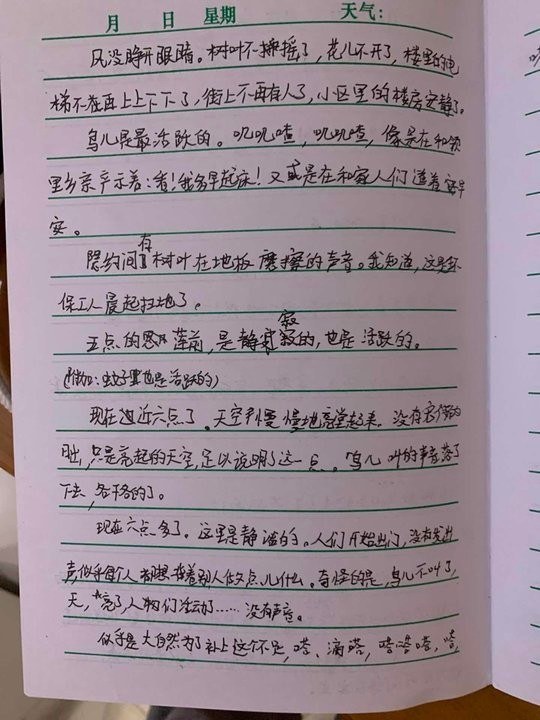 月 日 星期 天气：
风没睁开眼睛。树叶不摇摇了，花儿不开了，楼里的电
梯不在再上上下下了，街上不再有人了，小区里的楼房安静了。
鸟儿是最活跃的。叽叽喳，叽叽喳，像是在和邻
里乡亲产示着：看！我多早起床！又或是在和家人们道着安早
安。
隐约间有树叶在地板磨擦的声音。我知道，这是环
保工人晨起扫地了。
五点的莲前，是静寂的，也是活跃的。
(附加：蚊子也是活跃的)
现在迫近六点了。天空慢慢地亮堂起来。没有
只是亮起的天空，足以说明了这一点。鸟儿叫的声音落了
下去，各干各的了。
现在六点多了。这里是静谧的。人们开始出门，没有发出
声，似乎每个人都想着别人做点儿什么。奇怪的是，鸟儿不叫了，
天，亮了，人物们活动了……没有声音。
似乎是大自然为了补上这个不足，嗒、滴嗒，嗒嗒嗒，嗒，